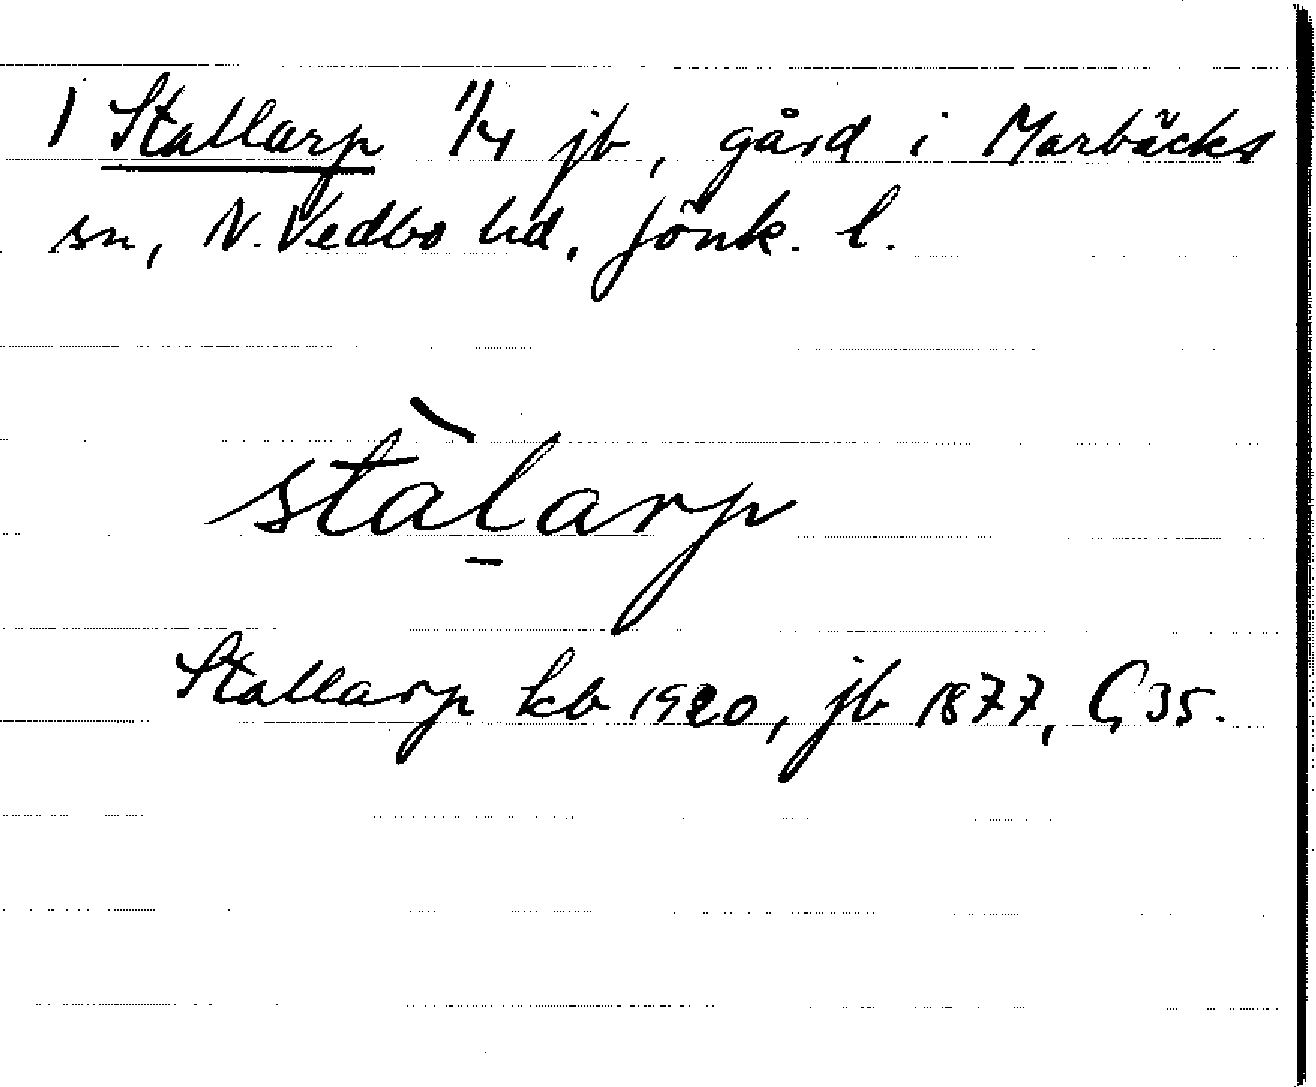 1 Stallarp 1/4 jb, gård i Marbäcks
sn, N. Vedbo hd, Jönk. l.
stàl̠arp
Stallarp kb 1920, jb 1877, G 35.